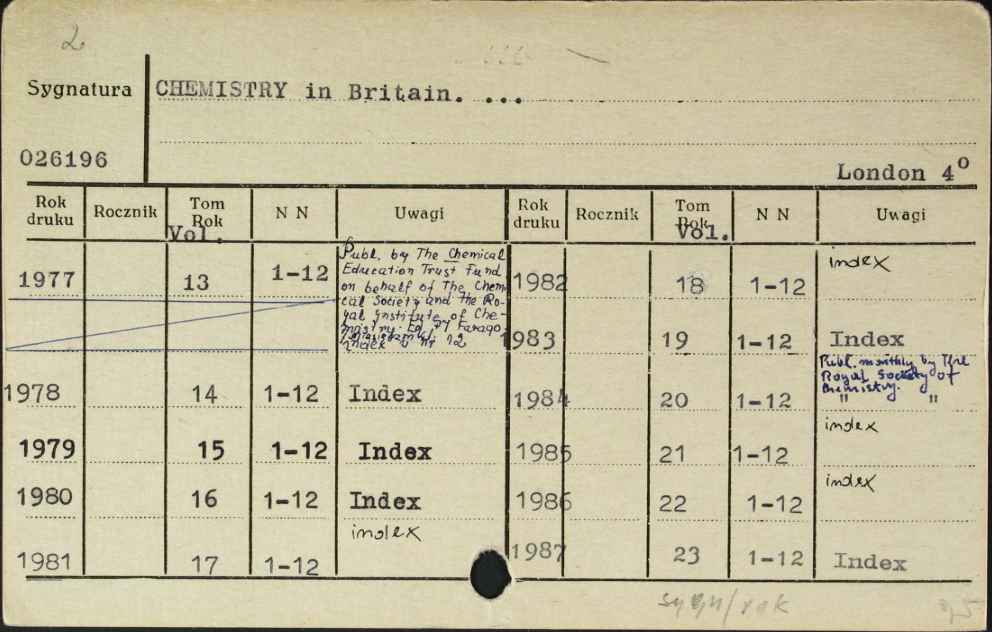 2
Sygnatura CHEMISTRY in Britain. ...
026196
London 4º
Rok druku Rocznik Tom Rok Vol. N N Uwagi Rok druku Rocznik Tom Rok Vol. N N Uwagi
1977 13 1-12
Publ. by The Chemical
Education Trust Fund
on behalf of The Chemi
cal Society and the Ro-
yal Institute of Che-
mistry. Ed.
index w nr 12
1982 18 1-12 index
1983 19 1-12 Index
Publ. monthly by The
Royal Society of
Chemistry.
1978 14 1-12 Index
1984 20 1-12 " "
1979 15 1-12 Index
1985 21 1-12 index
1980 16 1-12 Index
1986 22 1-12 index
1981 17 1-12 index
1987 23 1-12 Index